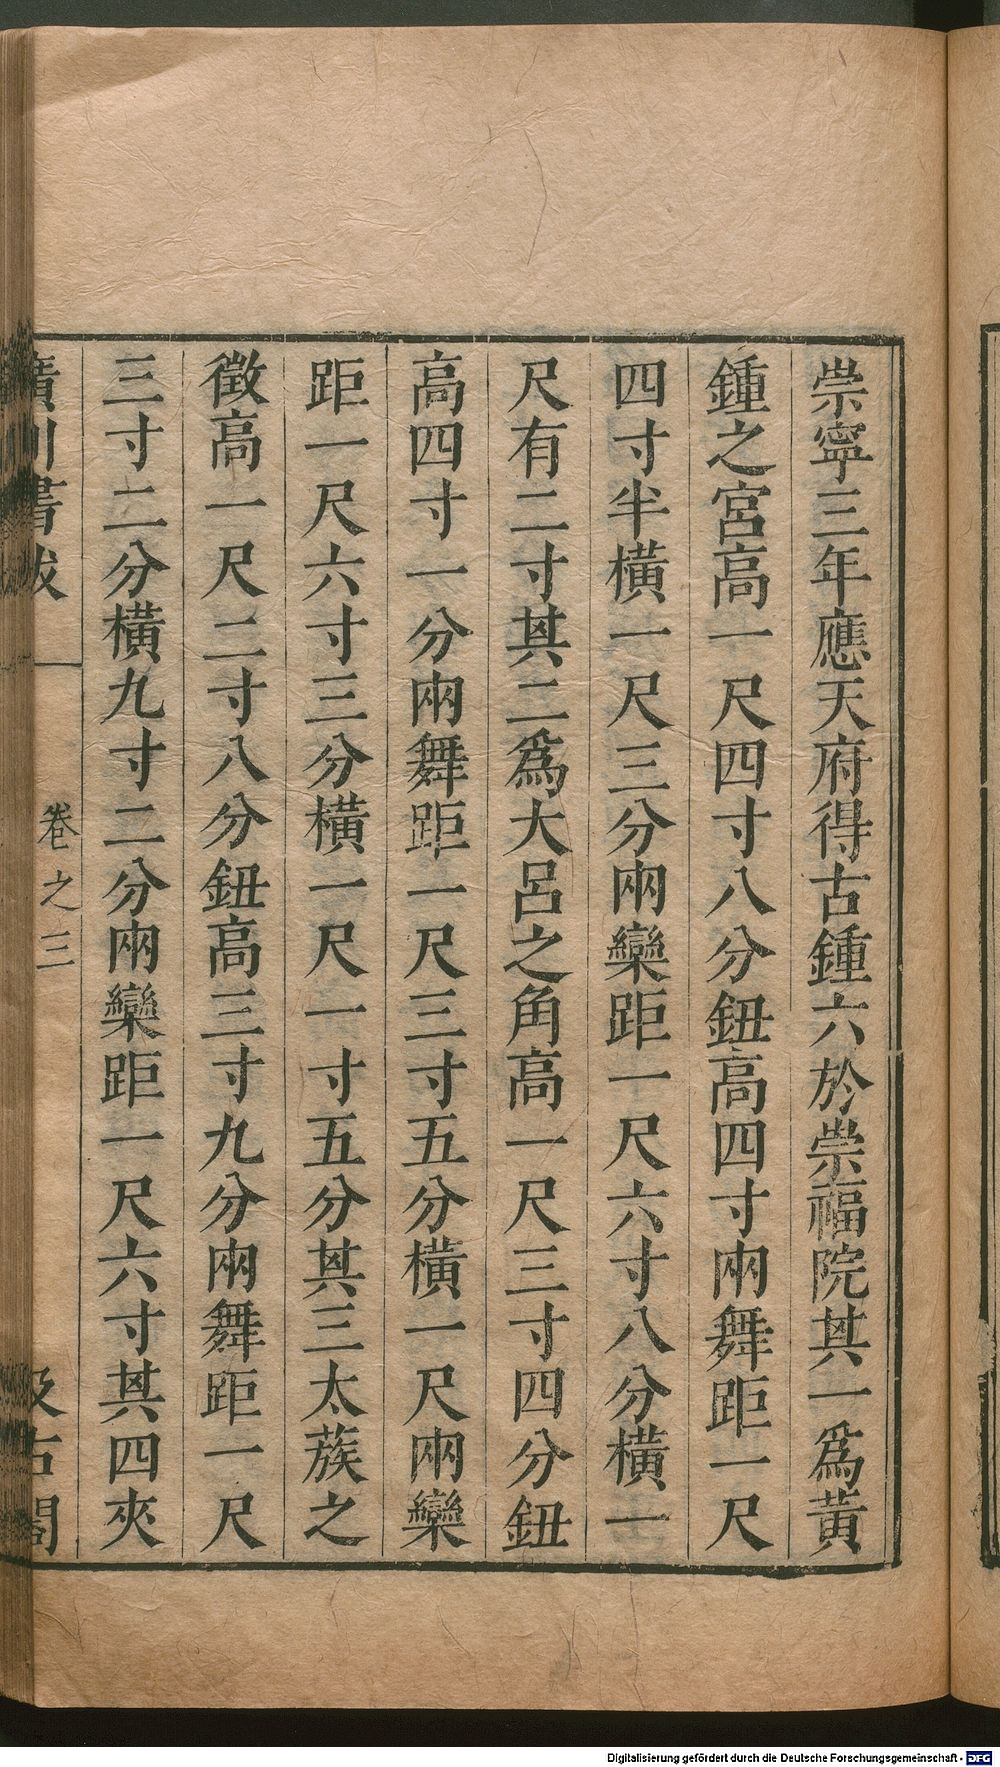 崇寧三年應天府得古鍾六於崇福院其一爲黃
鍾之宮高一尺四寸八分鈕高四寸兩舞距一尺
四寸半橫一尺三分兩欒距一尺六寸八分橫一
尺有二寸其二爲大呂之角高一尺三寸四分鈕
高四寸一分兩舞距一尺三寸五分橫一尺兩欒
距一尺六寸三分橫一尺一寸五分其三太蔟之
徵高一尺二寸八分鈕高三寸九分兩舞距一尺
三寸二分橫九寸二分兩欒距一尺六寸其四夾
廣川書跋
卷之三
汲古閣
Digitalisierung gefördert durch die Deutsche Forschungsgemeinschaft - DFG